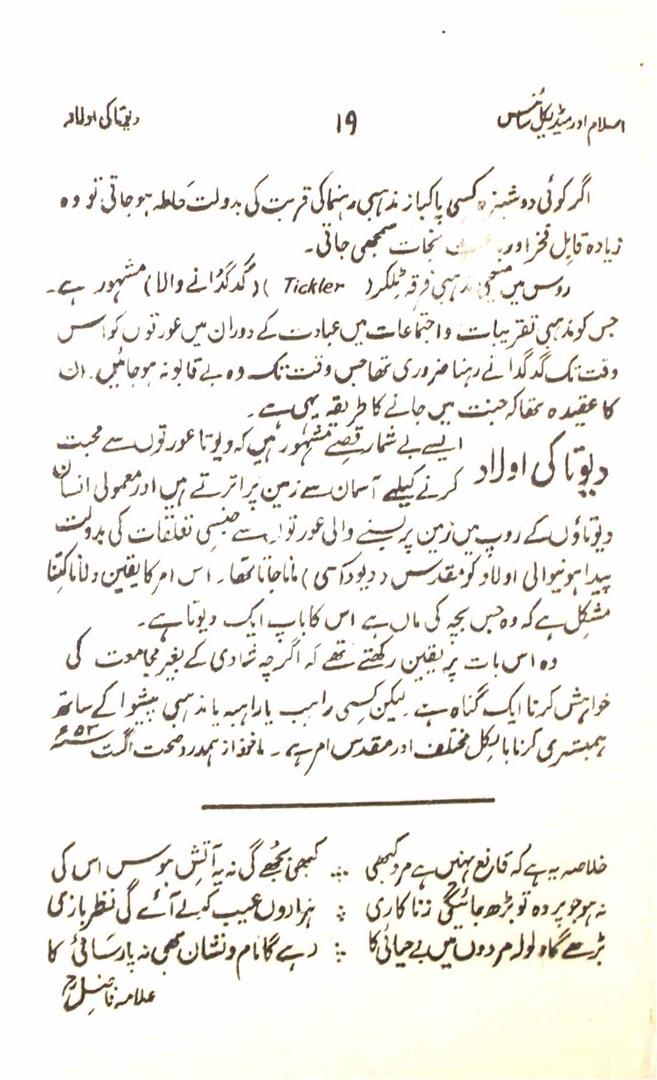 اسلام اور میڈیکل سائنس ۱۹ دیوتا کی اولاد
اگر کوئی دوشیزہ کسی پاکباز مذہبی رہنما کی قربت کی بدولت حاملہ ہو جاتی تو وہ
زیادہ قابل فخر اور نجات سمجھی جاتی۔
روس میں مسیحی مذہبی فرقہ ٹِکلر (Tickler) (گدگدانے والا) مشہور ہے۔
جس کو مذہبی تقریبات و اجتماعات میں عبادت کے دوران میں عورتوں کو اس
وقت تک گدگدانے رہنا ضروری تھا جس وقت تک وہ بے قابو نہ ہو جائیں۔ ان
کا عقیدہ تھا کہ جنت میں جانے کا طریقہ یہی ہے۔
دیوتا کی اولاد
ایسے بے شمار قصے مشہور ہیں کہ دیوتا عورتوں سے محبت
کرنے کیلئے آسمان سے زمین پر اترتے ہیں اور معمولی انسان
دیوتاؤں کے روپ میں زمین پر بسنے والی عورتوں سے جنسی تعلقات کی بدولت
پیدا ہونیوالی اولاد کو مقدس (دیوداسی) مانا جاتا تھا۔ اس امر کا یقین دلانا کتنا
مشکل ہے کہ وہ جس بچہ کی ماں ہے اس کا باپ ایک دیوتا ہے۔
وہ اس بات پر یقین رکھتے تھے کہ اگرچہ شادی کے بغیر مجامعت کی
خواہش کرنا ایک گناہ ہے لیکن کسی راہب یا راہبہ یا مذہبی پیشوا کے ساتھ
ہمبستری کرنا بالکل مختلف اور مقدس امر ہے۔ ماخوذ از ہمدرد صحت اگست ۵۳ء
خلاصہ یہ ہے کہ قانع نہیں ہے مرد کبھی ؞ کبھی بجھے گی نہ یہ آتش ہوس اس کی
نہ ہو جو پردہ تو بڑھ جائیگی زناکاری ؞ ہزاروں عیب کو لے آئے گی نظر بازی
بڑھے گا ولولہ مردوں میں بے حیائی کا ؞ رہے گا نام و نشان بھی نہ پارسائی کا
علامہ فاضل رح